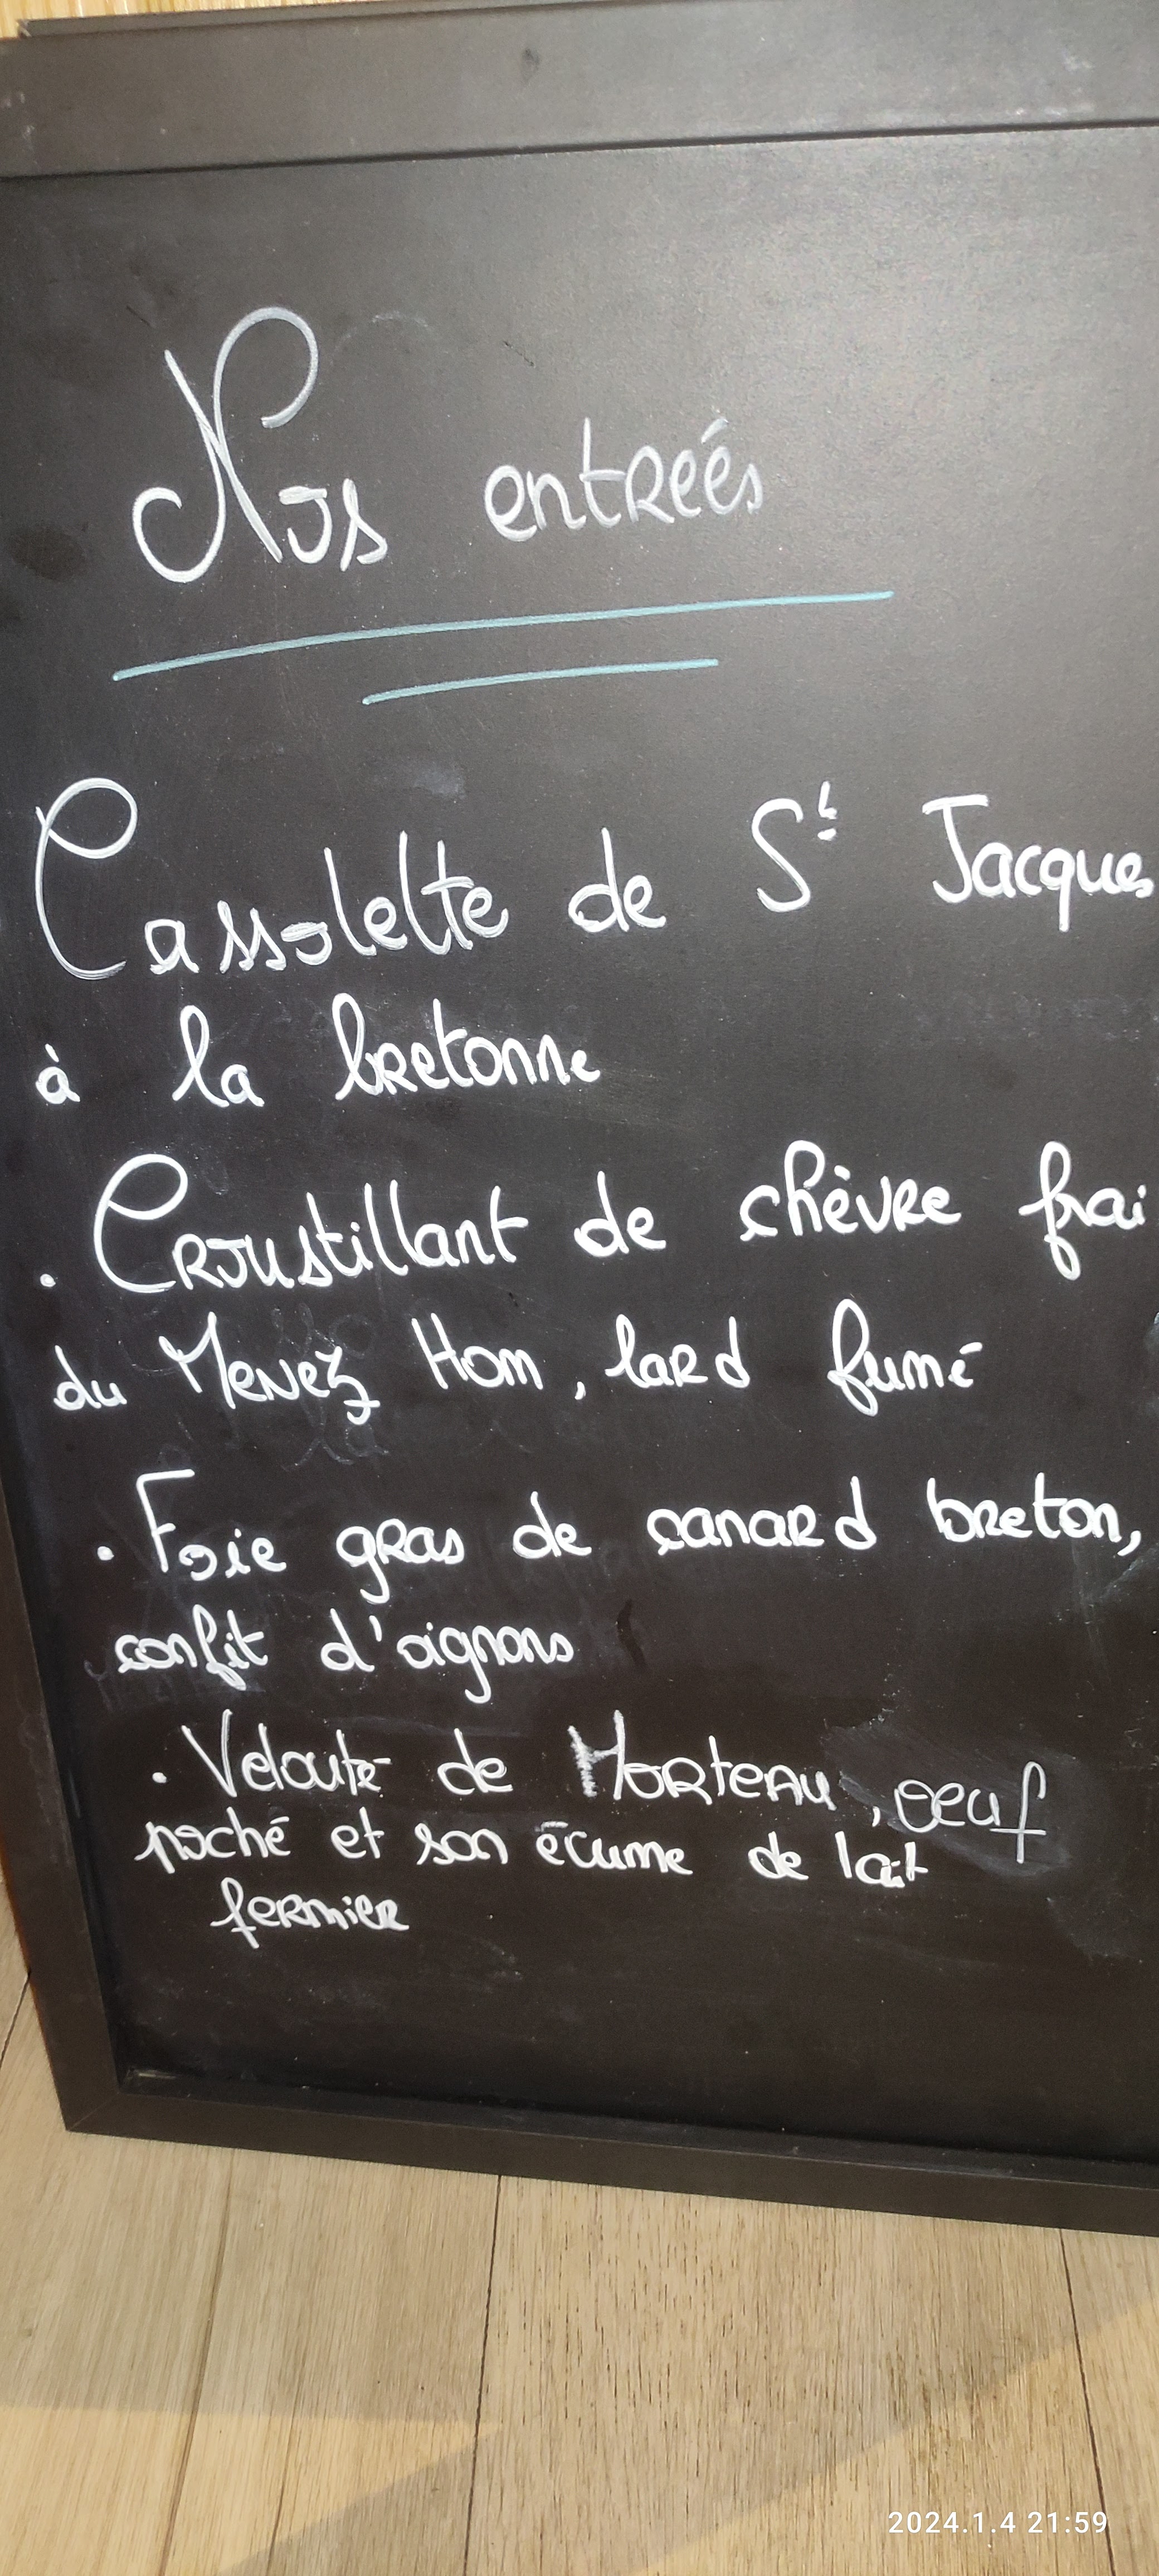 Nos entrées
Cassolette de St Jacques
à la bretonne
. Croustillant de chèvre frai
du Menez Hom, lard fumé
. Foie gras de canard breton,
confit d'oignons
. Velouté de Morteau, oeuf
poché et son écume de lait
fermier
2024.1.4 21:59